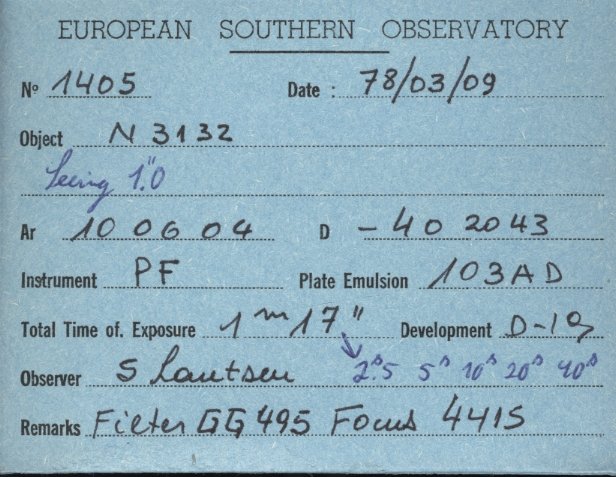 EUROPEAN SOUTHERN OBSERVATORY
Nº 1405 Date : 78/03/09
Object N 3132
Seeing 1."0
Ar 10 06 04 D -40 20 43
Instrument PF Plate Emulsion 103AD
Total Time of. Exposure 1m 17" Development D-19
Observer S Lautsen 2s.5 5s 10s 20s 40s
Remarks Filter GG 495 Focus 4415